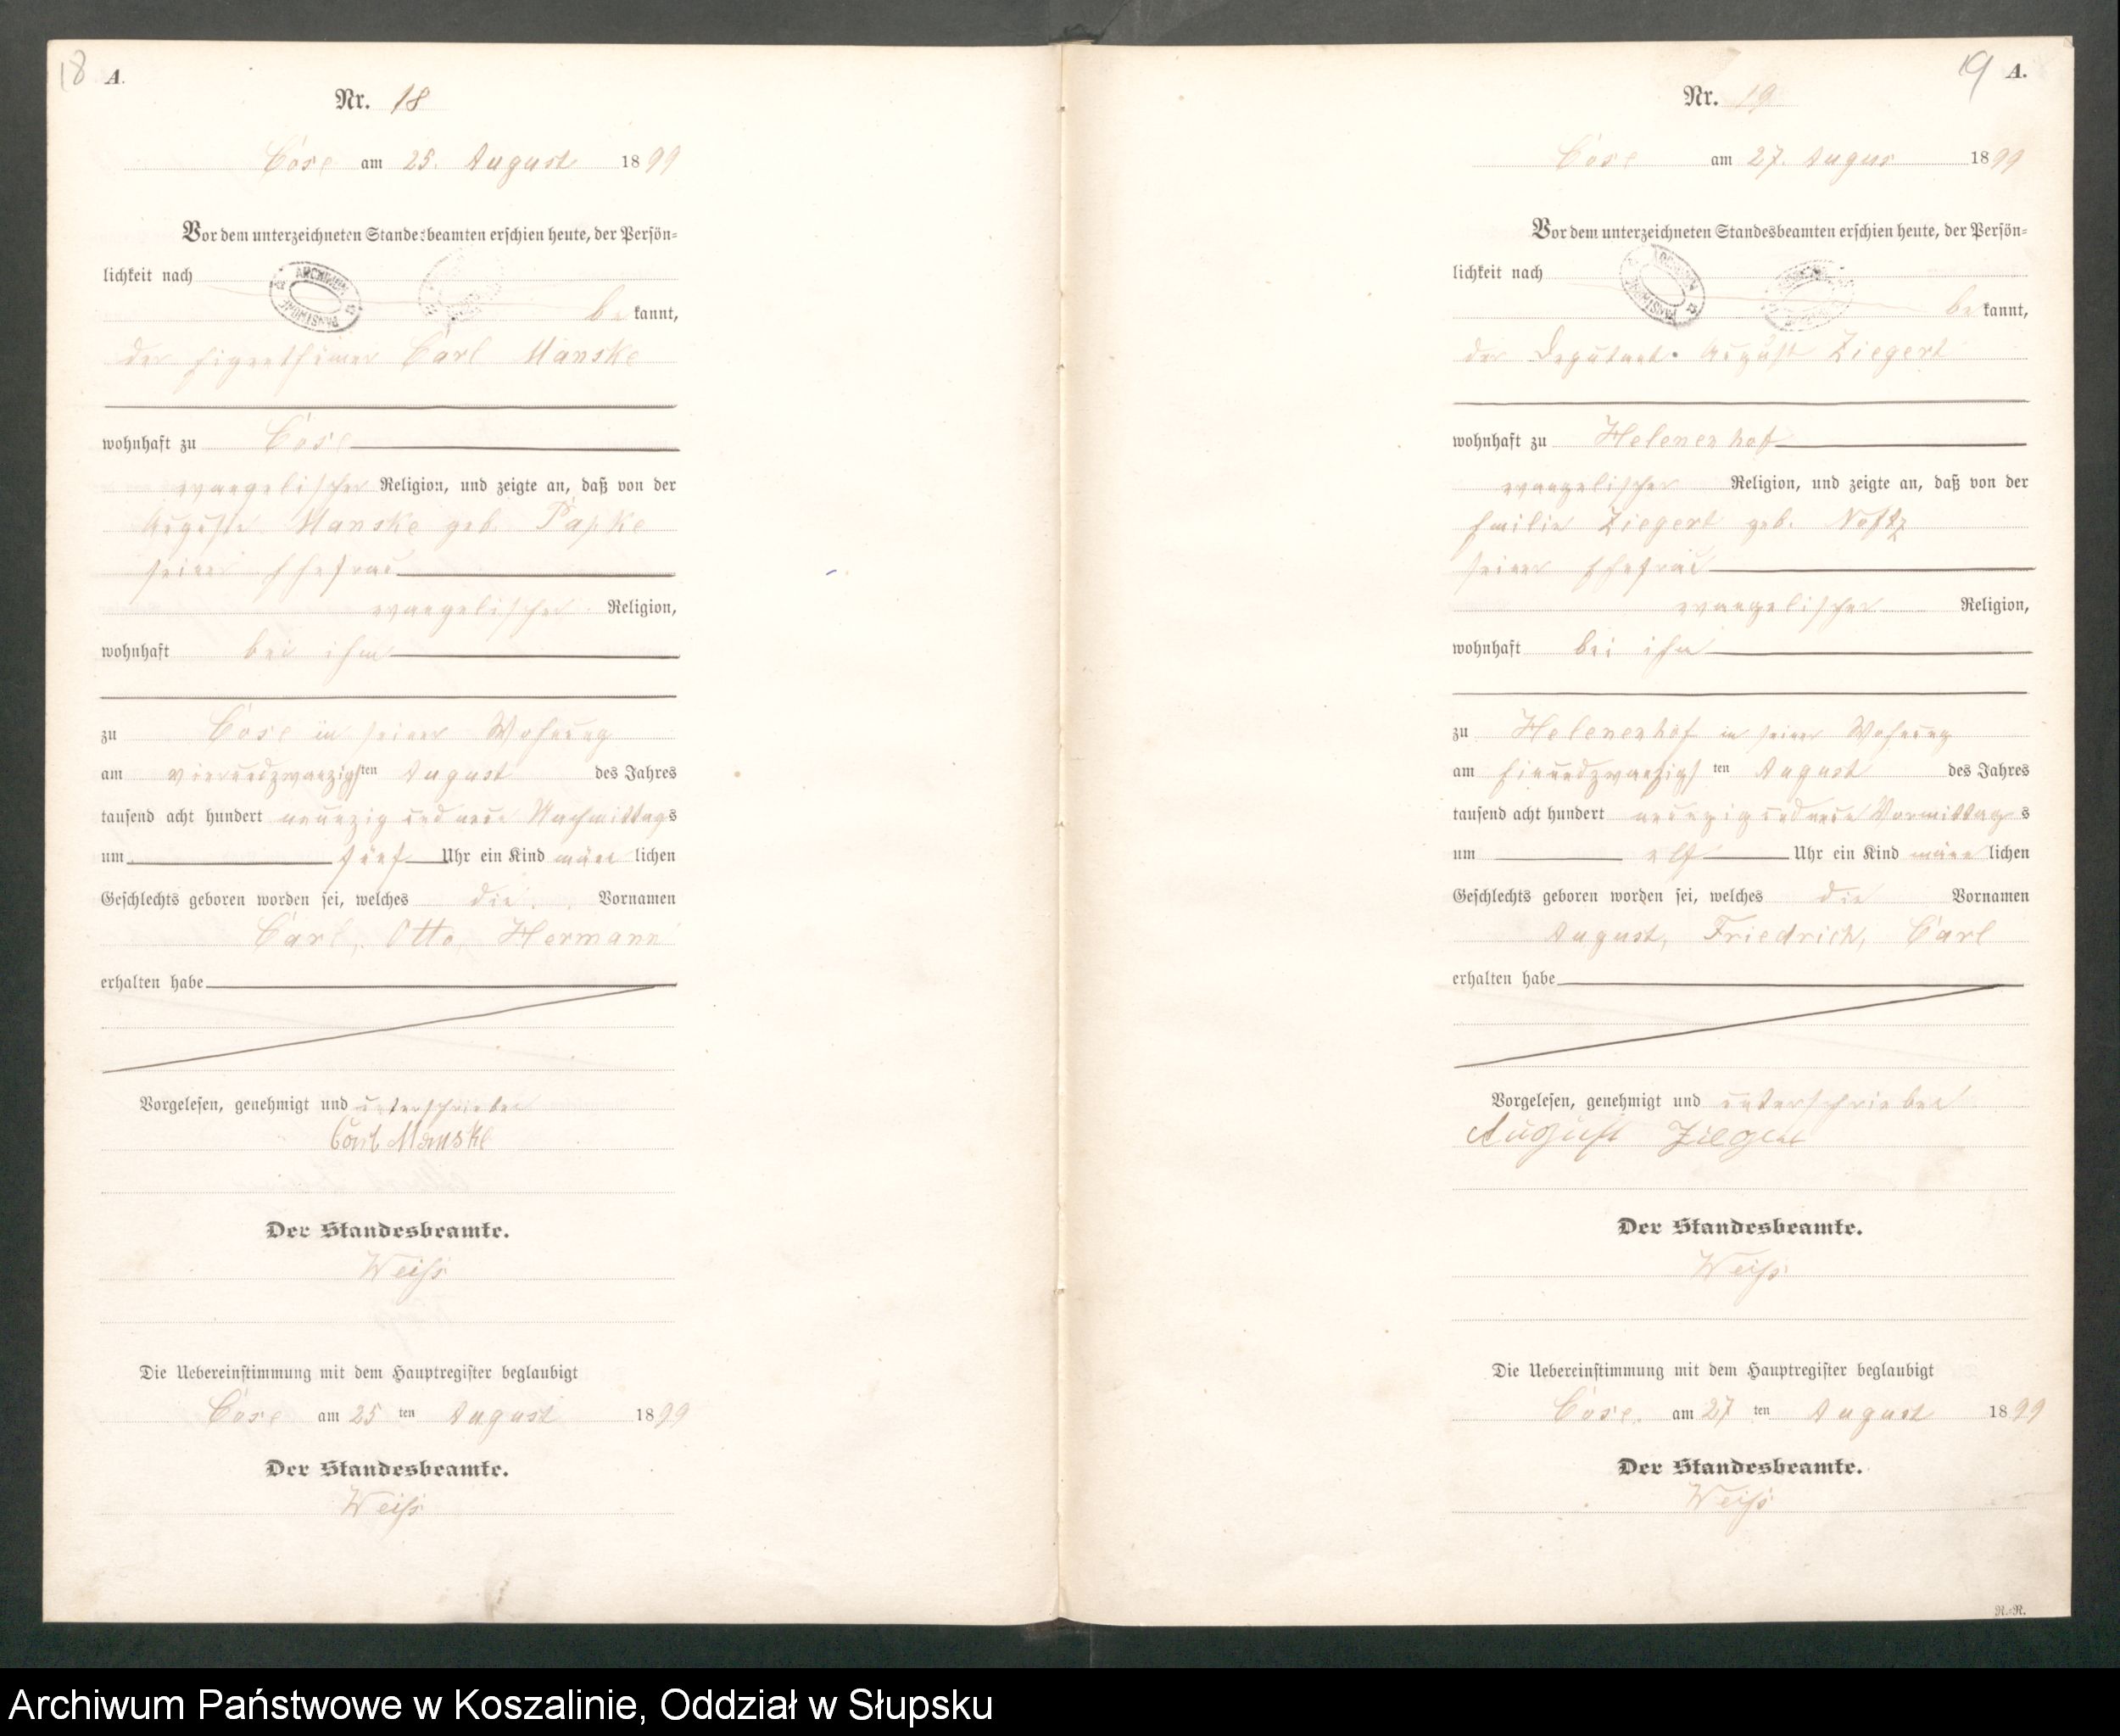 18 A.
Nr. 18
Cose am 25. August 1899
Vor dem unterzeichneten Standesbeamten erschien heute, der Persön=
lichkeit nach
ARCHIWUM PAŃSTWOWE
be kannt,
der Eigenthümer Carl Manske
wohnhaft zu Cose
evangelischer Religion, und zeigte an, daß von der
Auguste Manske geb. Papke
seiner Ehefrau
evangelischer Religion,
wohnhaft bei ihm
zu Cose in seiner Wohnung
am vierundzwanzigsten August des Jahres
tausend acht hundert neunzig und neun Nachmittags
um fünf Uhr ein Kind männlichen
Geschlechts geboren worden sei, welches die Vornamen
Carl, Otto, Hermann
erhalten habe
Vorgelesen, genehmigt und unterschrieben
Carl Manske
Der Standesbeamte.
Weiß
Die Uebereinstimmung mit dem Hauptregister beglaubigt
Cose am 25 ten August 1899
Der Standesbeamte.
Weiß
19 A.
Nr. 19
Cose am 27. Augus 1899
Vor dem unterzeichneten Standesbeamten erschien heute, der Persön=
lichkeit nach
be kannt,
der Deputant August Ziegert
wohnhaft zu Helenenhof
evangelischer Religion, und zeigte an, daß von der
Emilie Ziegert geb.
seiner Ehefrau
evangelischer Religion,
wohnhaft bei ihm
zu Helenenhof in seiner Wohnung
am einundzwanzigs ten August des Jahres
tausend acht hundert neunzig und neun Vormittags
um elf Uhr ein Kind männlichen
Geschlechts geboren worden sei, welches die Vornamen
August, Friedrich, Carl
erhalten habe
Vorgelesen, genehmigt und unterschrieben
August Ziegert
Der Standesbeamte.
Weiß
Die Uebereinstimmung mit dem Hauptregister beglaubigt
Cose. am 27 ten August 1899
Der Standesbeamte.
Weiß
R. R.
Archiwum Państwowe w Koszalinie, Oddział w Słupsku